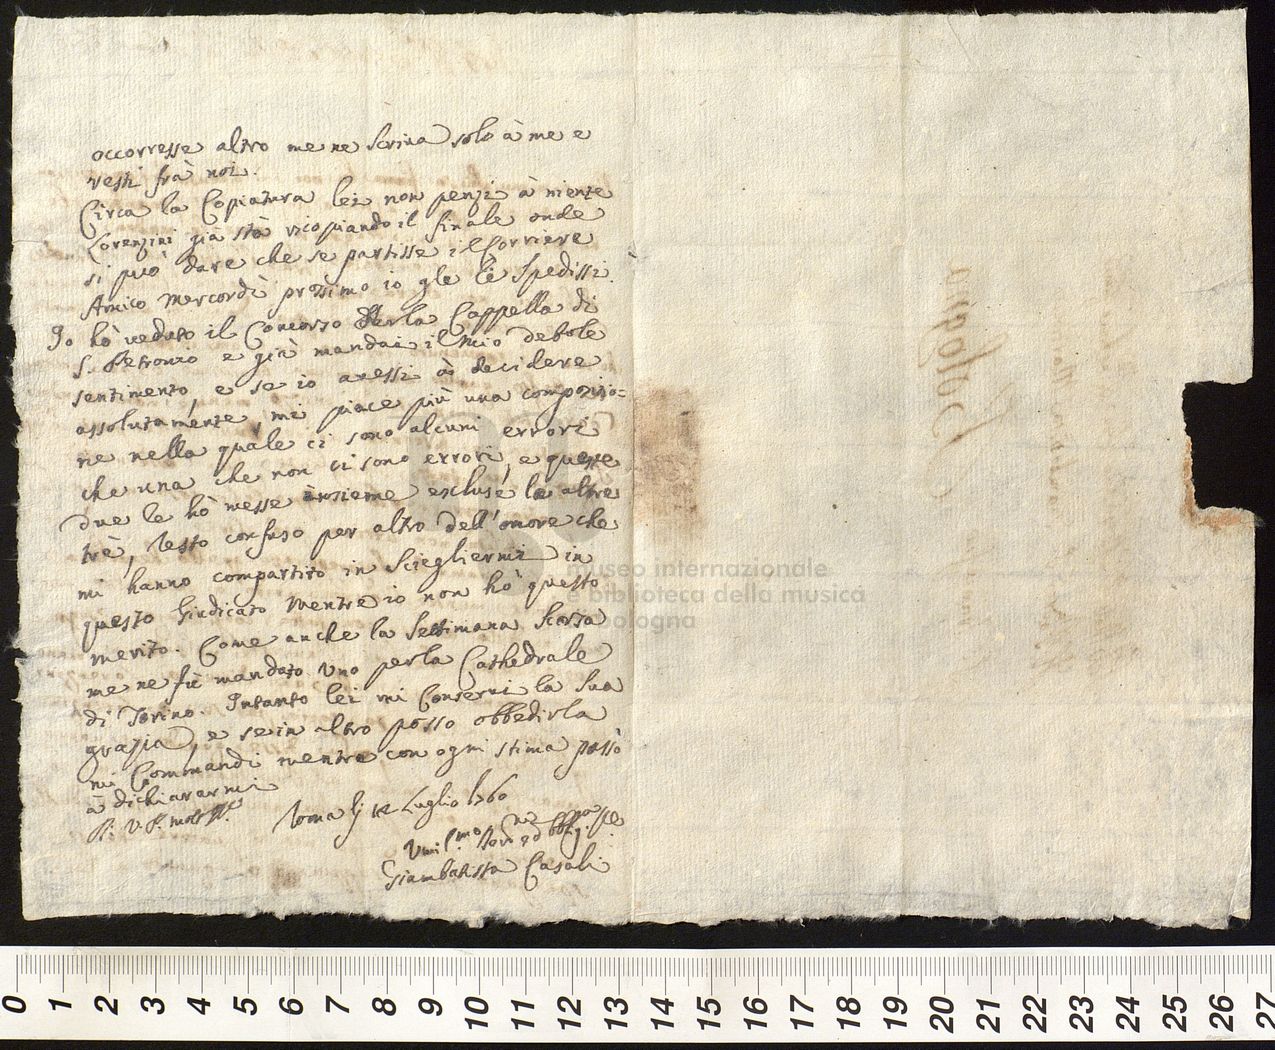 occorresse altro me ne scriva solo à me e
resti frà noi.
Circa la Copiatura lei non penzi à niente
Lorenzini già stà ricopiando il finale onde
si può dare che se partisse il Corriere
Amico Mercordì prossimo io gle le spedissi.
Io hò veduto il Concorso per la Cappella di
S. Petronio e già mandai il mio debole
sentimento, e se io avessi à decidere
assolutamente, mi piace più una composizio=
ne nella quale ci sono alcuni errori
che una che non ci sono errori, e queste
due le hò messe insieme escluse le altre
trè, resto confuso per altro dell'onore che
mi hanno compartito in sciegliermi in
questo Giudicato mentre io non hò questo
merito. Come anche la Settimana scorsa
me ne fù mandato uno per la Cathedrale
di Torino. Intanto lei mi Conservi la sua
grazia, e se in altro posso obbedirla
mi Commandi mentre con ogni stima passo
à dichiararmi
Di V. P. molto
Roma li 12 Luglio 1760
Umil.mo
Giambatista Casali
Bologna
museo internazionale
e biblioteca della musica
di bologna
0 1 2 3 4 5 6 7 8 9 10 11 12 13 14 15 16 17 18 19 20 21 22 23 24 25 26 27